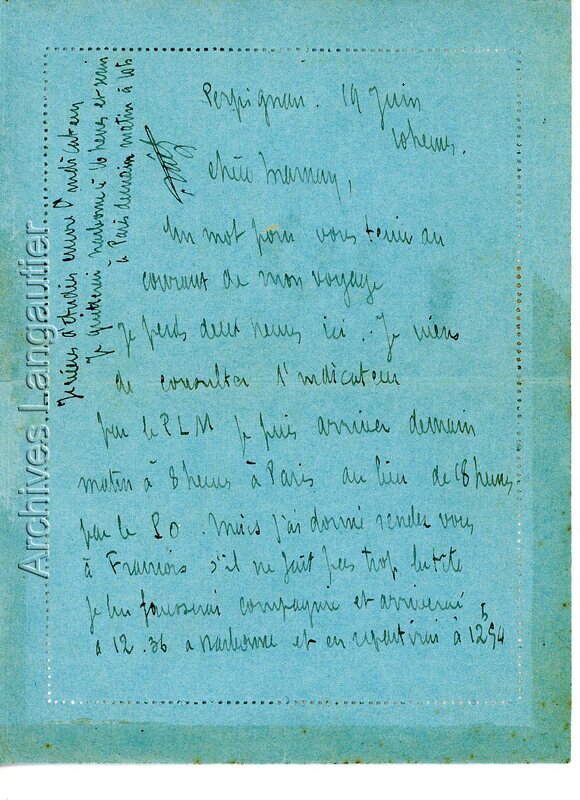 Perpignan. 19 Juin
10 heures.
chère Mamay,
Un mot pour vous tenir au
courant de mon voyage
je perds deux heures ici. Je viens
de consulter l'indicateur
par le PLM je puis arriver demain
matin à 8 heures à Paris au lieu de 18 heures
par le PO. Mais j'ai donné rendez vous
à François s'il ne fait pas trop la tête
je lui fausserai compagnie et arriverai
à 12.36 à Narbonne et en repartirai à
Je viens d'étudier encore l'indicateur
Je quitterai Narbonne à 20 heures et serai
à Paris demain matin à
Archives Langautier